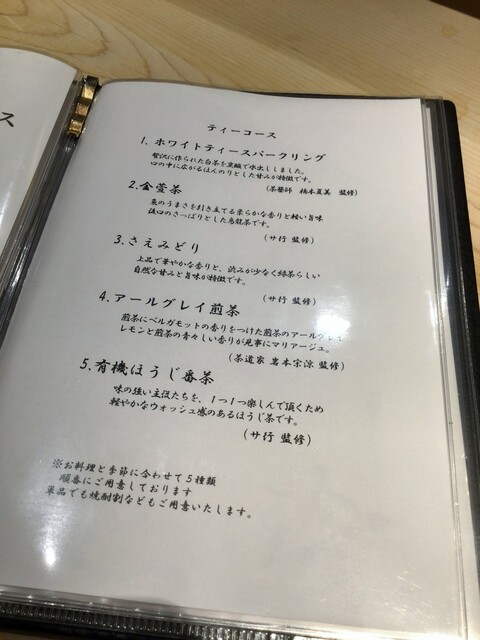 ス
ティーコース
1. ホワイトティースパークリング
贅沢に作られた白茶を炭酸で水出ししました。
口の中に広がるほんのりとした甘みが特徴です。
(茶藝師 橋本夏美 監修)
2.金萱茶
魚のうまさを引き立てる柔らかな香りと軽い旨味
後口のさっぱりとした烏龍茶です。
(サ行 監修)
3.さえみどり
上品で華やかな香りと、渋みが少なく緑茶らしい
自然な甘みと旨味が特徴です。
(サ行 監修)
4.アールグレイ煎茶
煎茶にベルガモットの香りをつけた煎茶のアールグレイ
レモンと煎茶の青々しい香りが見事にマリアージュ。
(茶道家 岩本宗涼 監修)
5.有機ほうじ番茶
味の強い主役たちを、1つ1つ楽しんで頂くため
軽やかなウォッシュ感のあるほうじ茶です。
(サ行 監修)
※お料理と季節に合わせて5種類
順番にご用意しております
単品でも焼酎割などもご用意いたします。